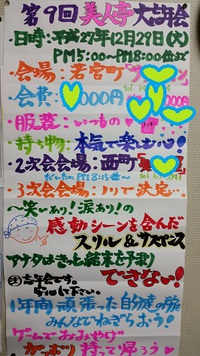 第9回美人寺大忘年会
・日時:平成27年12月29日(火)
PM5:00〜PM8:00位まで
・会場:若宮町
・会費: 000円 000円
・服装:いつもの
・持ち物:本気で楽しむ心!
・2次会会場:西町
だいたいPM8:15位〜
・3次会会場:ノリで決定…
〜笑いあり!涙あり!の
感動シーンを含んだ
スリル&サスペンス
アナタはきっと結末を予測
できない!
注 忘年会です。
1年間頑張った自分達の為に
みんなでねぎらおう!
ゲームでおみやげ
持って帰ろう